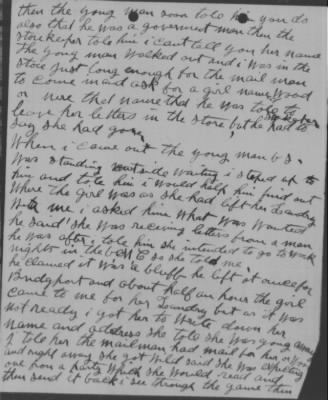 then the young man soon told him you do
also that he was a goverment man then the
storekeeper told him i cant tell you her name
The young man walked out and i was in the
store just long enough for the mail man
to come in and ask for a girl name Wood
or nere that name that he was told to
leave her letters in the store, but he had to
say she had gone
When i came out the young man
was standing outside waiting i steped up to
him and told him i would help him find out
where the girl was as she had left her laundry
with me i asked him what was wanted
he said she was receving letters from a man
he was after, i told him she intended to go to work
nights in the so she told me
he claimed it was a bluff he left at once for
Bridgport and about half an hour the girl
came to me for her Laundry but as it was
not ready i got her to write down her
name and address she told she was going away
I told her the mailman had mail for her
and right away she got wild said she was expecting
one from a party which she would read and
then send it back i see through the game then